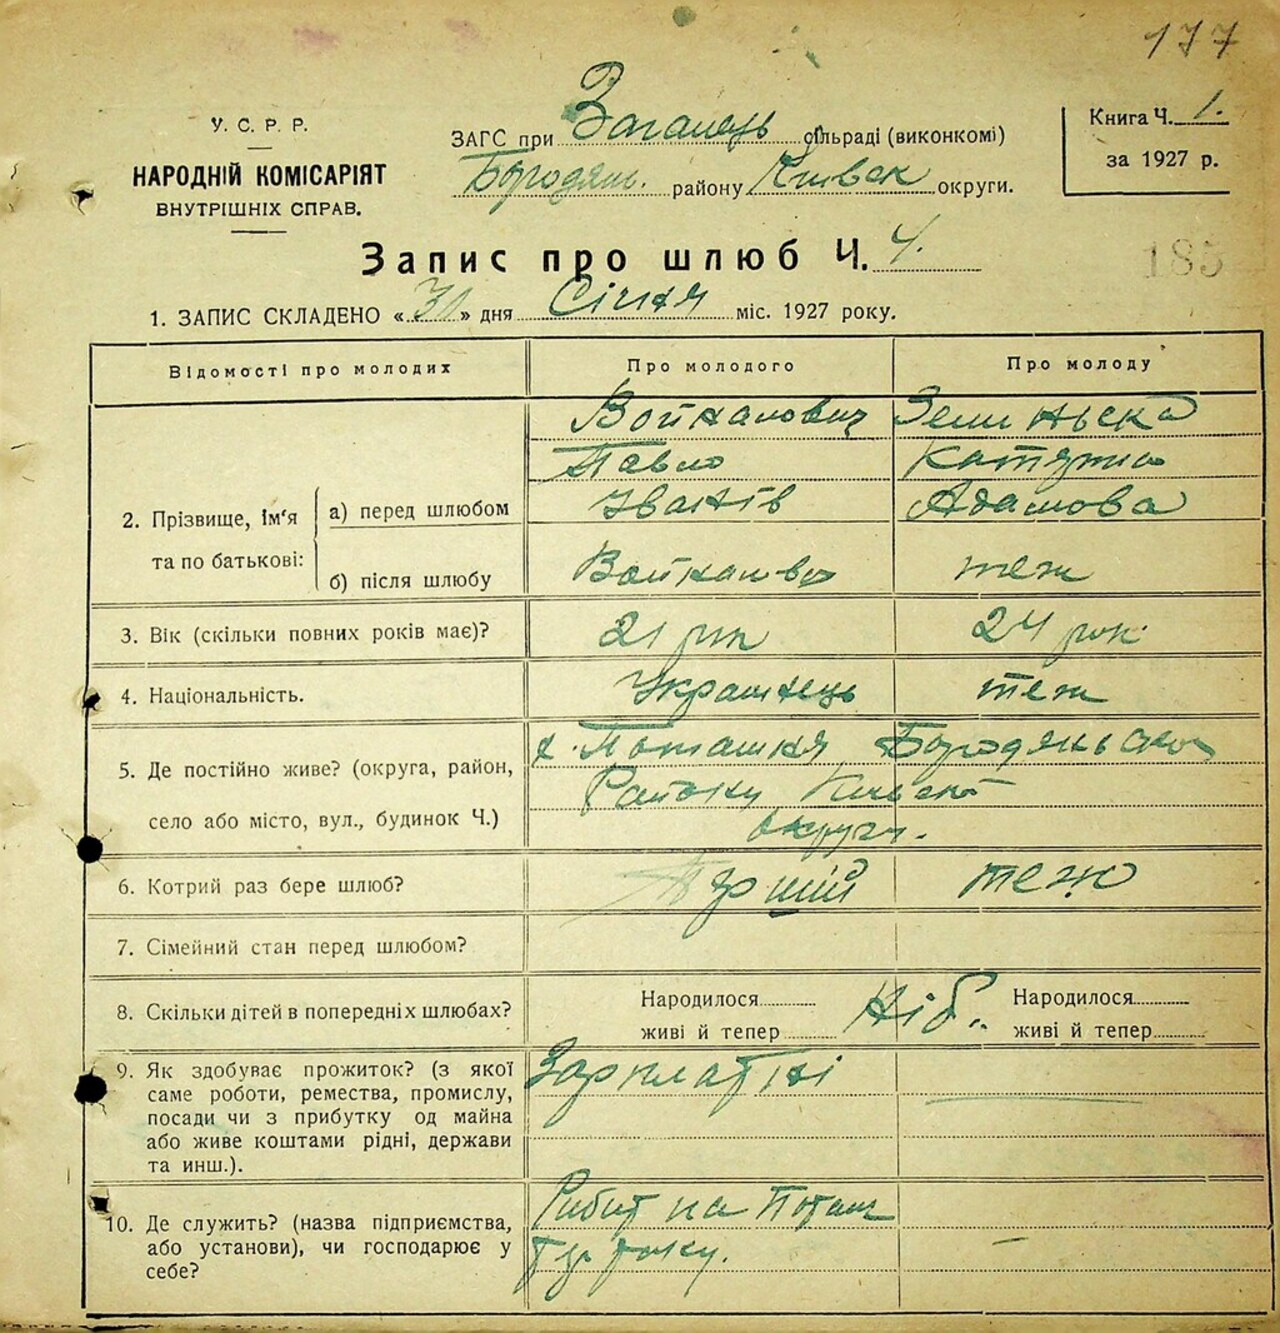 177
У. С. Р. Р.
НАРОДНІЙ КОМІСАРІЯТ
ВНУТРІШНІХ СПРАВ.
ЗАГС при Загалець сільраді (виконкомі)
Бородян. району Київськ округи.
Книга Ч. 1.
за 1927 р.
Запис про шлюб Ч. 4.
185
1. ЗАПИС СКЛАДЕНО «31» дня Січня міс. 1927 року.
Відомості про молодих Про молодого Про молоду
2. Прізвище, ім'я та по батькові:
а) перед шлюбом
Войналович
Павло
Іванів
Земиньска
Катерина
Адамова
б) після шлюбу
теж
3. Вік (скільки повних років має)? 21 рік 24 рок.
4. Національність. Українець теж
5. Де постійно живе? (округа, район,
село або місто, вул., будинок Ч.)
х. Поташня Бородянського
Району Київської
округи.
6. Котрий раз бере шлюб? Перший теж
7. Сімейний стан перед шлюбом?
8. Скільки дітей в попередніх шлюбах?
Народилося
живі й тепер
Ніб..
Народилося
живі й тепер
9. Як здобуває прожиток? (з якої
саме роботи, ремества, промислу,
посади чи з прибутку од майна
або живе коштами рідні, держави
та инш.).
Зарплатні
10. Де служить? (назва підприємства,
або установи), чи господарює у
себе?
на Поташ